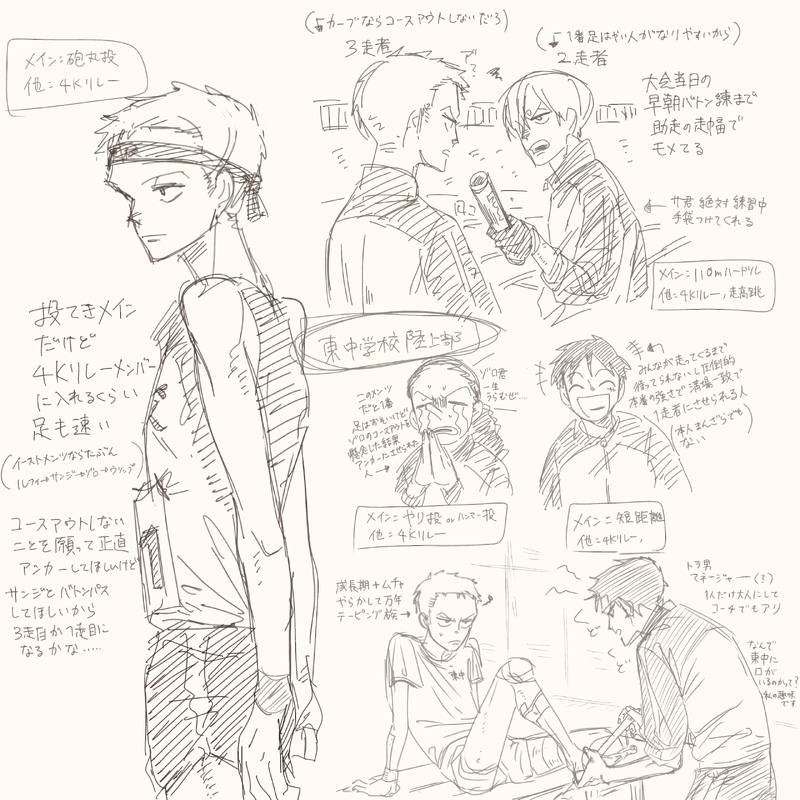 メイン：砲丸投
他：4Kリレー
(カーブならコースアウトしないだろ)
3走者
で？
(1番足はやい人がなりやすいから)
2走者
大会当日の
早朝バトン練まで
助走の走幅で
モメてる
サ君 絶対 練習中
手袋つけてくれる
メイン：110mハードル
他：4Kリレー, 走高跳
東中学校 陸上部
投てきメイン
だけど
4Kリレーメンバー
に入れるくらい
足も速い
(イーストメンツならたぶん
ルフィ→サンジ→ゾロ→ウソップ)
コースアウトしない
ことを願って正直
アンカーしてほしいけど
サンジとバトンパス
してほしいから
3走目か1走目に
なるかな……
このメンツ
だと1番
足はおそいけど
ゾロのコースアウトを
懸念した結果
アンカーにさせられた
人→
ゾロ君
一生
うらむぜ…
メイン：やり投 or ハンマー投
他：4Kリレー
みんなが走ってくるまで
待ってられないし圧倒的
本番の強さで満場一致で
1走者にさせられる人
(本人まんざらでも
ない)
メイン：短距離
他：4Kリレー,
成長期＋ムチャ
やらかして万年
テーピング族→
東中
トラ男
マネージャー(？)
1人だけ大人にして
コーチでもアリ
なんで
東中に
ロが
いるのかって？
私の趣味
です